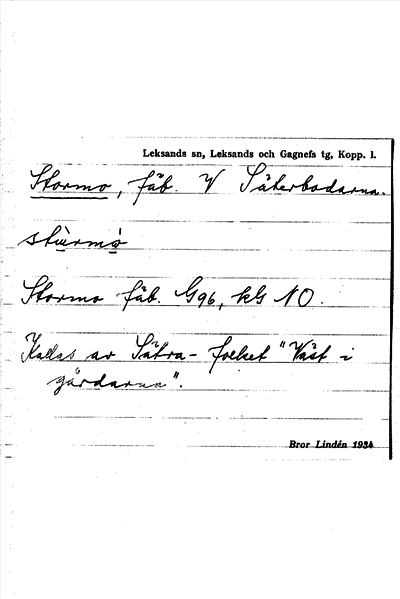 Leksands sn, Leksands och Gagnefs tg, Kopp. l.
Stormo, fäb. V Säterbodarna.
stùrmò
Stormo fäb. G96, kG NO.
Kallas av Sätra-folket "Väst i
gårdarna".
Bror Lindén 1934